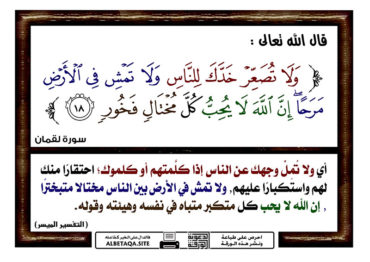 قال الله تعالى :
﴿ وَلَا تُصَعِّرْ خَدَّكَ لِلنَّاسِ وَلَا تَمْشِ فِي الْأَرْضِ
مَرَحًا ۖ إِنَّ اللَّهَ لَا يُحِبُّ كُلَّ مُخْتَالٍ فَخُورٍ ١٨ ﴾
سورة لقمان
أي ولا تُمِلْ وجهك عن الناس إذا كلَّمتهم أو كلموك؛ احتقارًا منك
لهم واستكبارًا عليهم. ولا تمش في الأرض بين الناس مختالا متبخترًا
, إن الله لا يحب كل متكبر متباه في نفسه وهيئته وقوله.
( التفسير الميسر )
احرص على طباعة
ونشر هذه الورقة
ALBETAQA.SITE